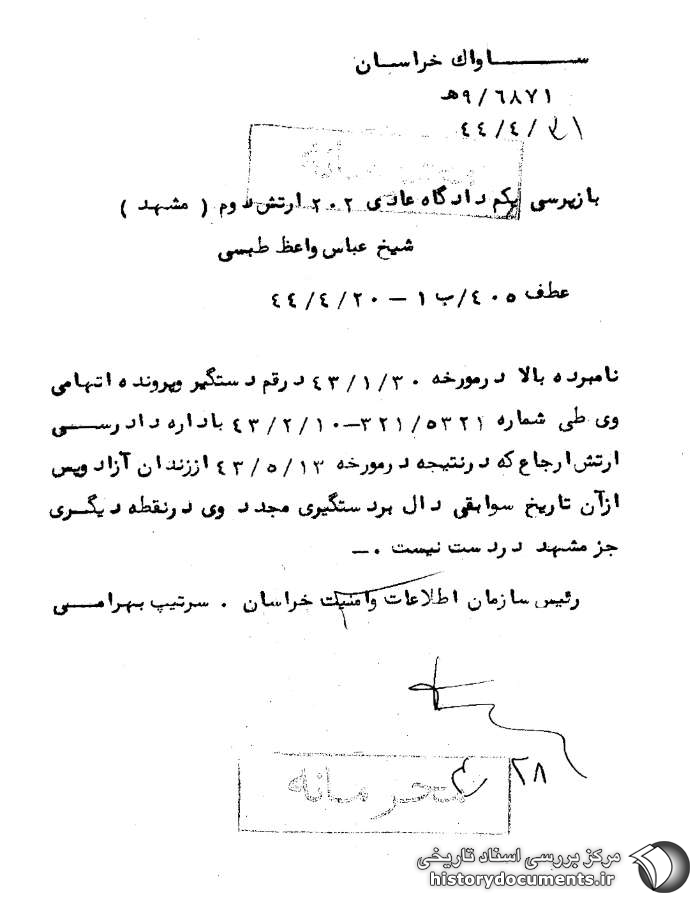 ســـاواك خراسان
۹/٦۸۷۱هـ
/٤/٤٤
محرمانه
بازپرسی یکم دادگاه عادی ۲۰۲ ارتش دوم ( مشهد )
شیخ عباس واعظ طبسی
عطف ٤۰٥/ب ۱ – ٤٤/٤/۲۰
نامبرده بالا درمورخه ٤۳/۱/۳۰ درقم دستگیر وپرونده اتهامی
وی طی شماره ۳۲۱/٥۳۲۱–٤۳/۲/۱۰ باداره دادرســی
ارتش ارجاع که درنتیجه درمورخه ٤۳/٥/۱۳ اززندان آزاد وپس
ازآن تاریخ سوابقی دال بردستگیری مجدد وی درنقطه دیگــری
جز مشهد دردست نیست .ــ
رئیس سازمان اطلاعات وامنیت خراسان . سرتیپ بهرامــی
۲۸
محرمانه
مرکز بررسی اسناد تاریخی
historydocuments.ir